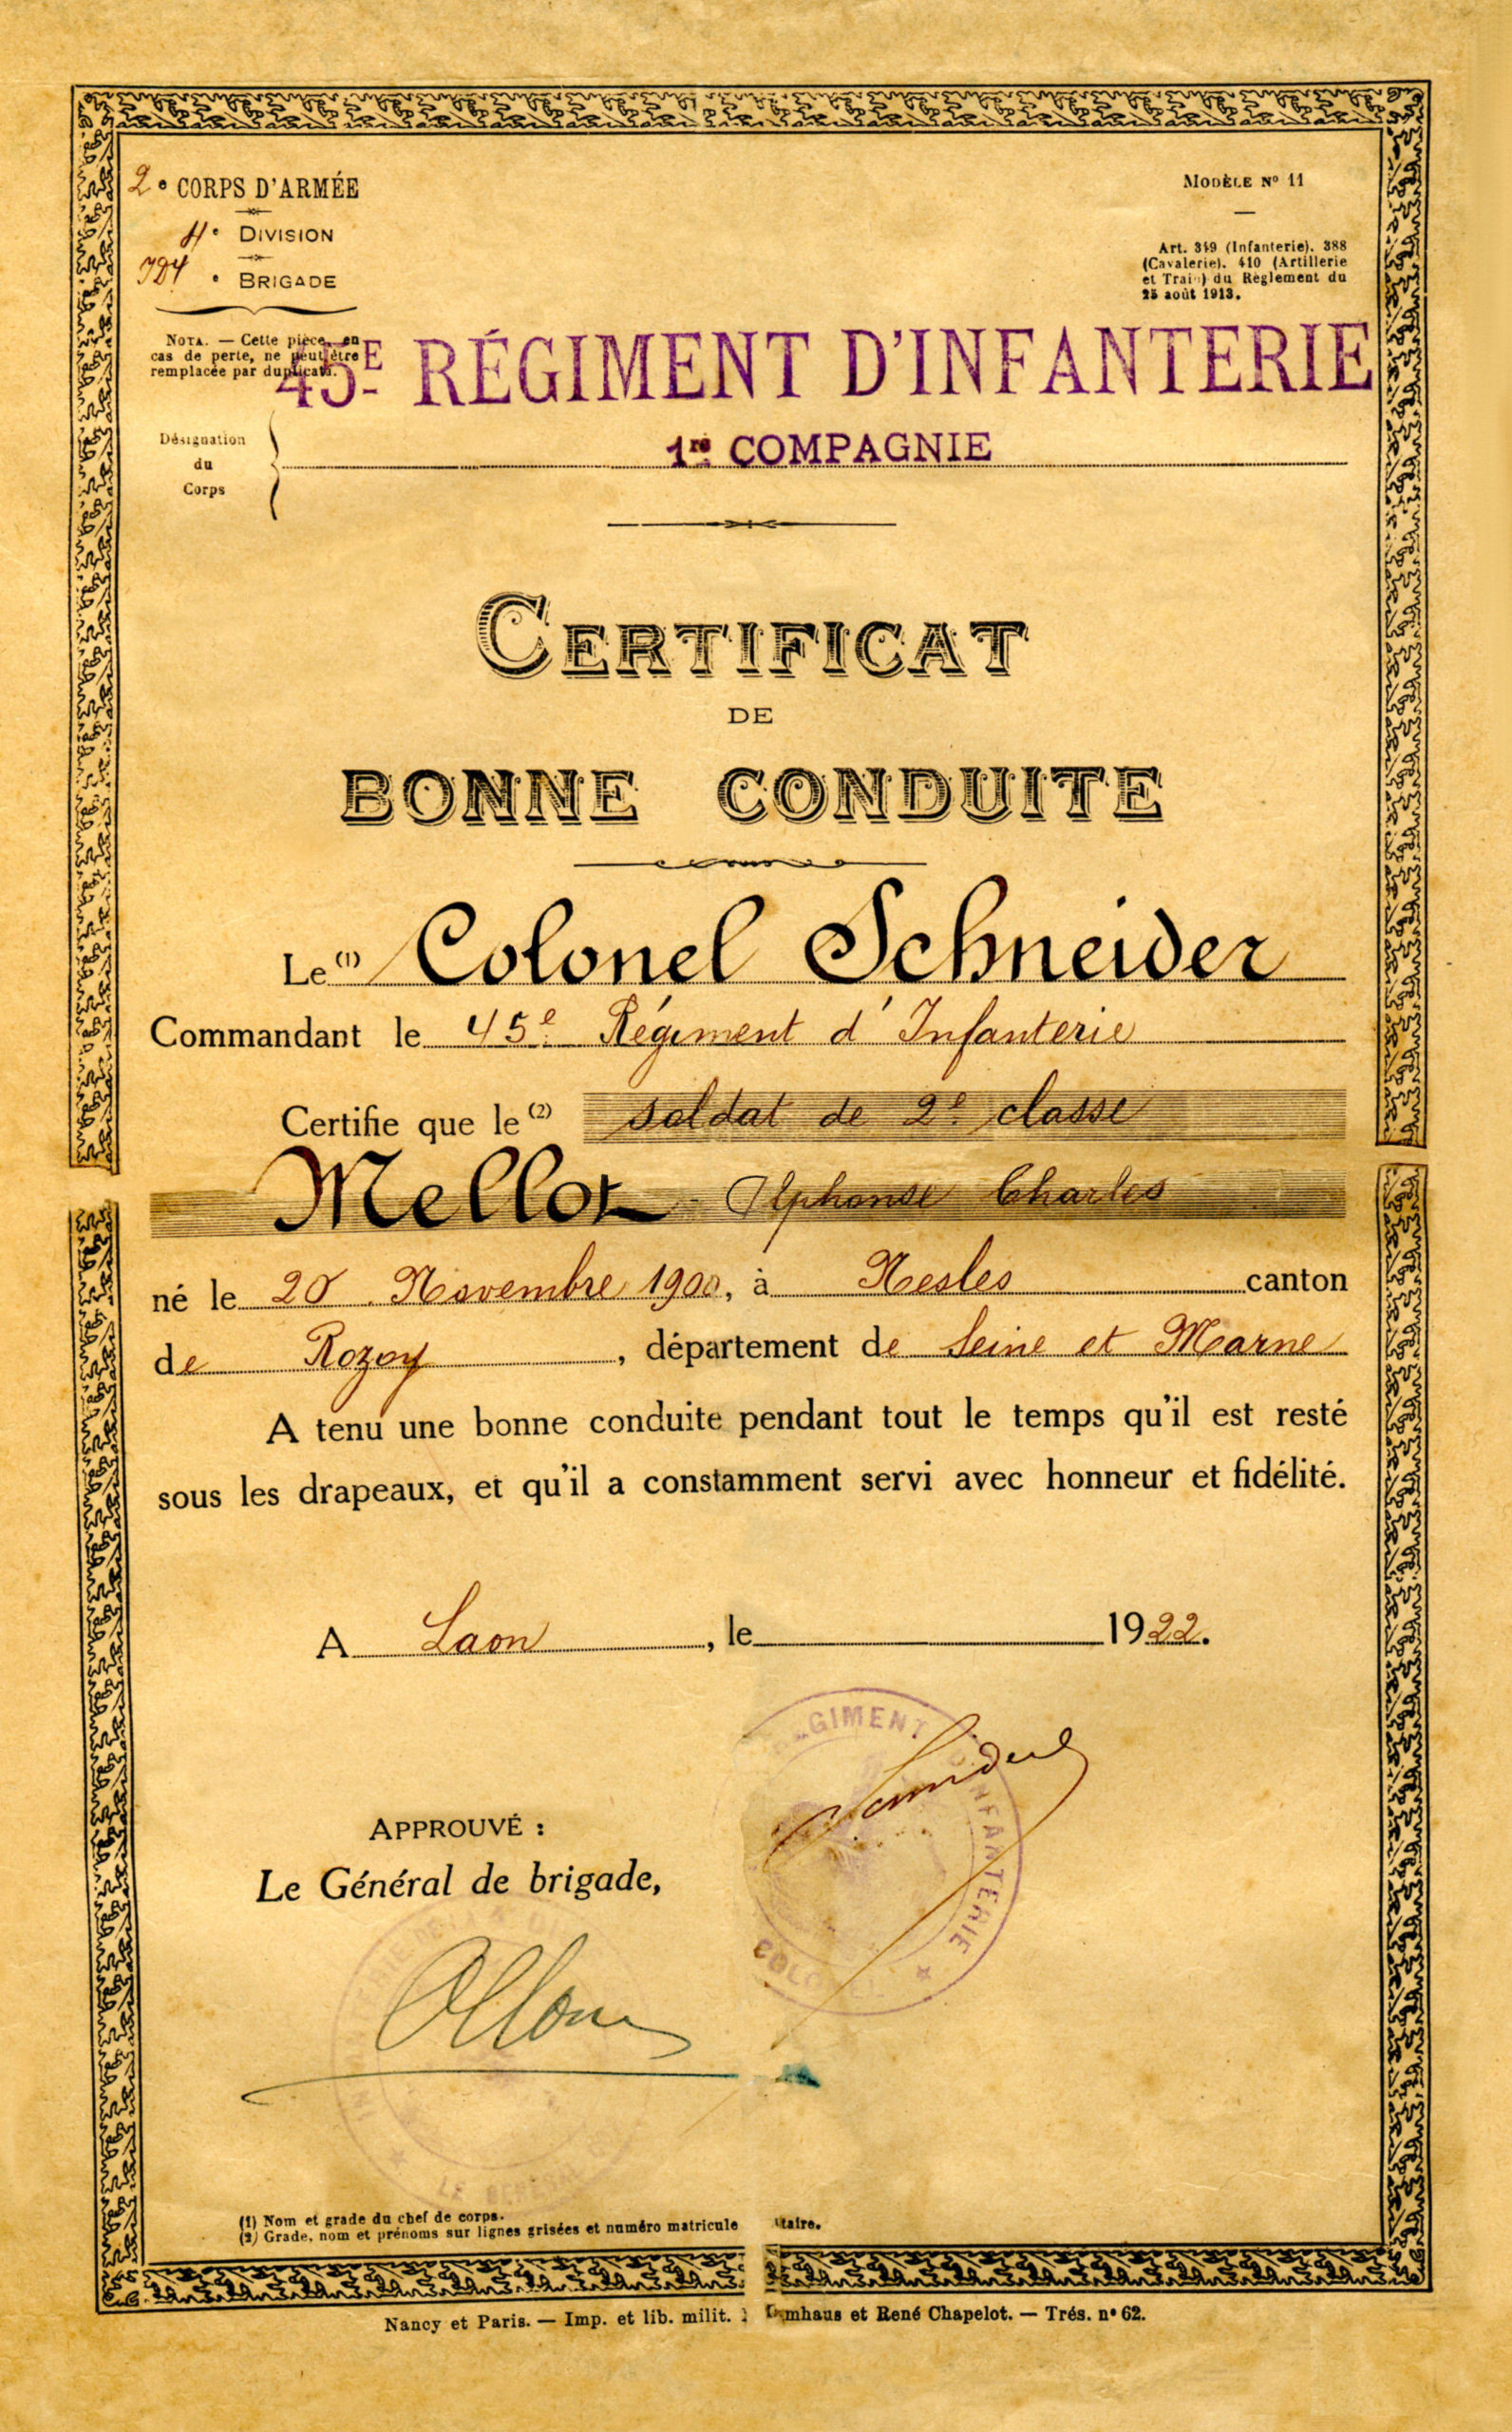 2e CORPS D'ARMÉE
4e DIVISION
ID4 e BRIGADE
MODÈLE No 11
Art. 349 (Infanterie). 388
(Cavalerie). 410 (Artillerie
et Train) du Règlement du
25 août 1913.
NOTA. — Cette pièce, en
cas de perte, ne peut être
remplacée par duplicata.
45E RÉGIMENT D'INFANTERIE
Désignation
du
Corps
1re COMPAGNIE
CERTIFICAT
DE
BONNE CONDUITE
Le (1) Colonel Schneider
Commandant le 45e Régiment d'Infanterie
Certifie que le (2) soldat de 2e classe
Mellot Alphonse Charles
né le 20 Novembre 1900, à Nesles canton
de Rozoy, département de Seine et Marne
A tenu une bonne conduite pendant tout le temps qu'il est resté
sous les drapeaux, et qu'il a constamment servi avec honneur et fidélité.
A Laon, le 1922.
RÉGIMENT D'INFANTERIE
COLONEL
APPROUVÉ :
Le Général de brigade,
INFANTERIE DE LA
LE GÉNÉRAL
(1) Nom et grade du chef de corps.
(2) Grade, nom et prénoms sur lignes grisées et numéro matricule taire.
Nancy et Paris. — Imp. et lib. milit. mhaus et René Chapelot. — Trés. no 62.